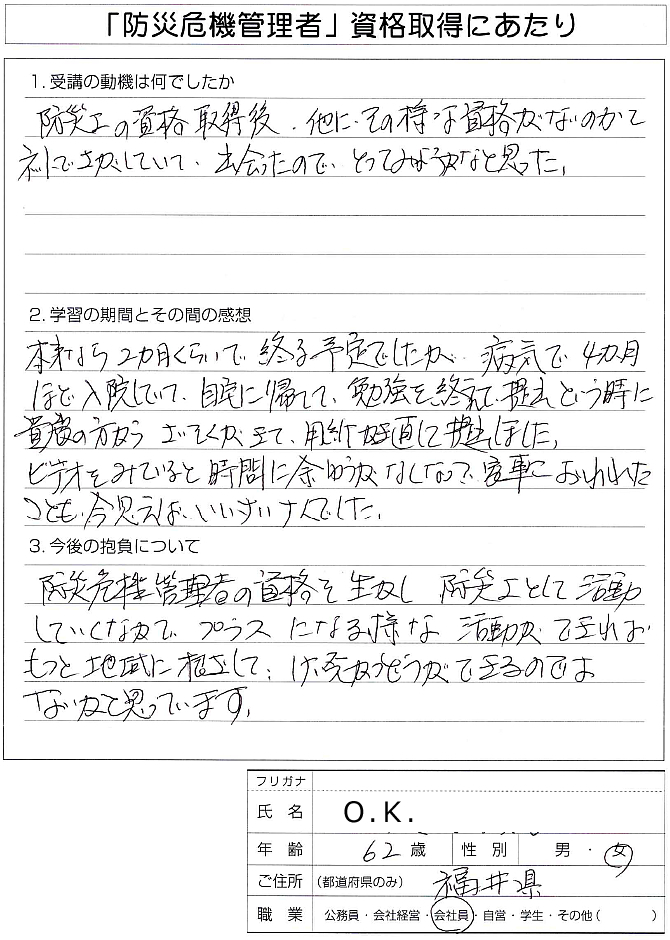 「防災危機管理者」資格取得にあたり
1. 受講の動機は何でしたか
防災士の資格取得後、他に、その様な資格がないのかと
ネットでさがしていて、出会ったので、とってみようかなと思った。
2. 学習の期間とその間の感想
本来なら2カ月くらいで終る予定でしたが、病気で4カ月
ほど入院していて、自宅に帰って、勉強を終えて、提出という時に
の方から きて、用紙 直して提出しました。
ビデオをみていると時間に余ゆうがなくなって、家事におわれた
ことも、今思えば、いいけいけんでした。
3. 今後の抱負について
防災危機管理者の資格を生かし 防災士として活動
していくなかで、プラスになる様な活動ができれば
もっと地域に根ざして、けい発かつどうができるのでは
ないかと思っています。
フリガナ
氏名 O.K.
年齢 62歳 性別 男・女
ご住所 (都道府県のみ) 福井県
職業 公務員・会社経営・会社員・自営・学生・その他( )